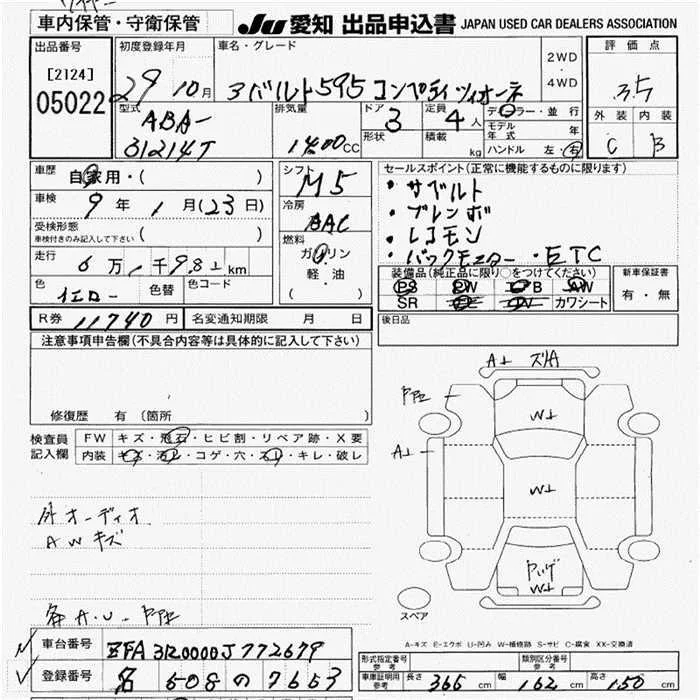 車内保管・守衛保管
JU 愛知 出品申込書 JAPAN USED CAR DEALERS ASSOCIATION
出品番号
[2124]
05022
初度登録年月
29 10月
車名・グレード
アバルト595 コンペティツィオーネ
2WD
4WD
評価点
3.5
外装 内装
C B
型式
ABA-
31214T
排気量
1400CC
ドア 3
形状
定員 4人
積載 kg
ディーラー・並行
モデル年式 年
ハンドル 左・右
車歴 自家用・( )
車検 9年1月(23日)
受検形態
車検付きのみ記入して下さい ( )
走行 6万 千982km
色 イエロー 色替 色コード
シフト M5
冷房 AAC
燃料
ガソリン
軽・油
( )
セールスポイント(正常に機能するものに限ります)
・サベルト
・ブレンボ
・レコモン
・バックモニター・ETC
装備品(純正品に限り○をつけてください)
PS PW エアB AW
SR カワシート
新車保証書
有・無
R券 11740円 名変通知期限 月 日
後日品
注意事項申告欄(不具合内容等は具体的に記入して下さい)
修復歴 有(箇所 )
検査員記入欄
FW キズ・飛石・ヒビ割・リペア跡・X要
内装 キズ・汚レ・コゲ・穴・スレ・キレ・破レ
外オーディオ
AWキズ
各A.U
A⊥
W⊥
A⊥
W⊥
W⊥
スペア
A-キズ E-エクボ U-凹み W-補修跡 S-サビ C-腐食 XX-交換済
車台番号 ZFA3120000J772679
登録番号 名 508 の 7653
形式指定番号 参考
類別区分番号 参考
車庫証明用 参考 長さ 366cm 幅 162cm 高さ 150cm